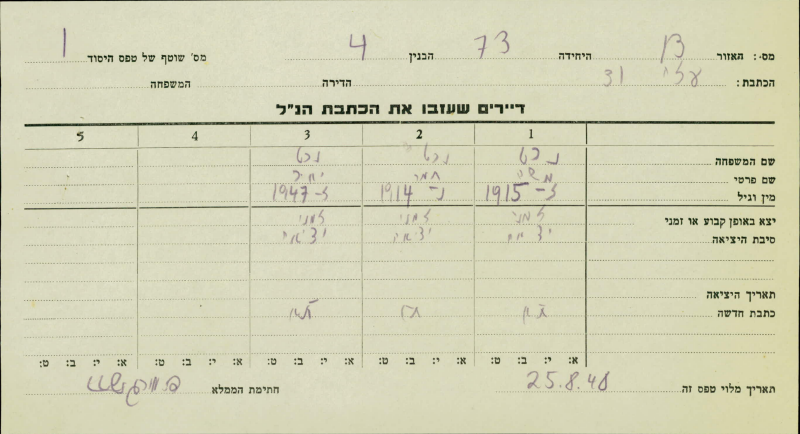 מס.: האזור היחידה 73 הבנין 4 מס' שוטף של טפס היסוד 1
הכתבת: עלי 31 הדירה המשפחה
דיירים שעזבו את הכתבת הנ"ל
1 2 3 4 5
שם המשפחה
שם פרטי משה תמר יאיר
מין וגיל ז-1915 נ-1914 ז-1947
יצא באופן קבוע או זמני זמני זמני זמני
סיבת היציאה יציאה יציאה יציאה
תאריך היציאה
כתבת חדשה ת"א ת"א
א: י: ב: ט: א: י: ב: ט: א: י: ב: ט: א: י: ב: ט: א: י: ב: ט:
תאריך מלוי טפס זה 25.8.48 חתימת הממלא